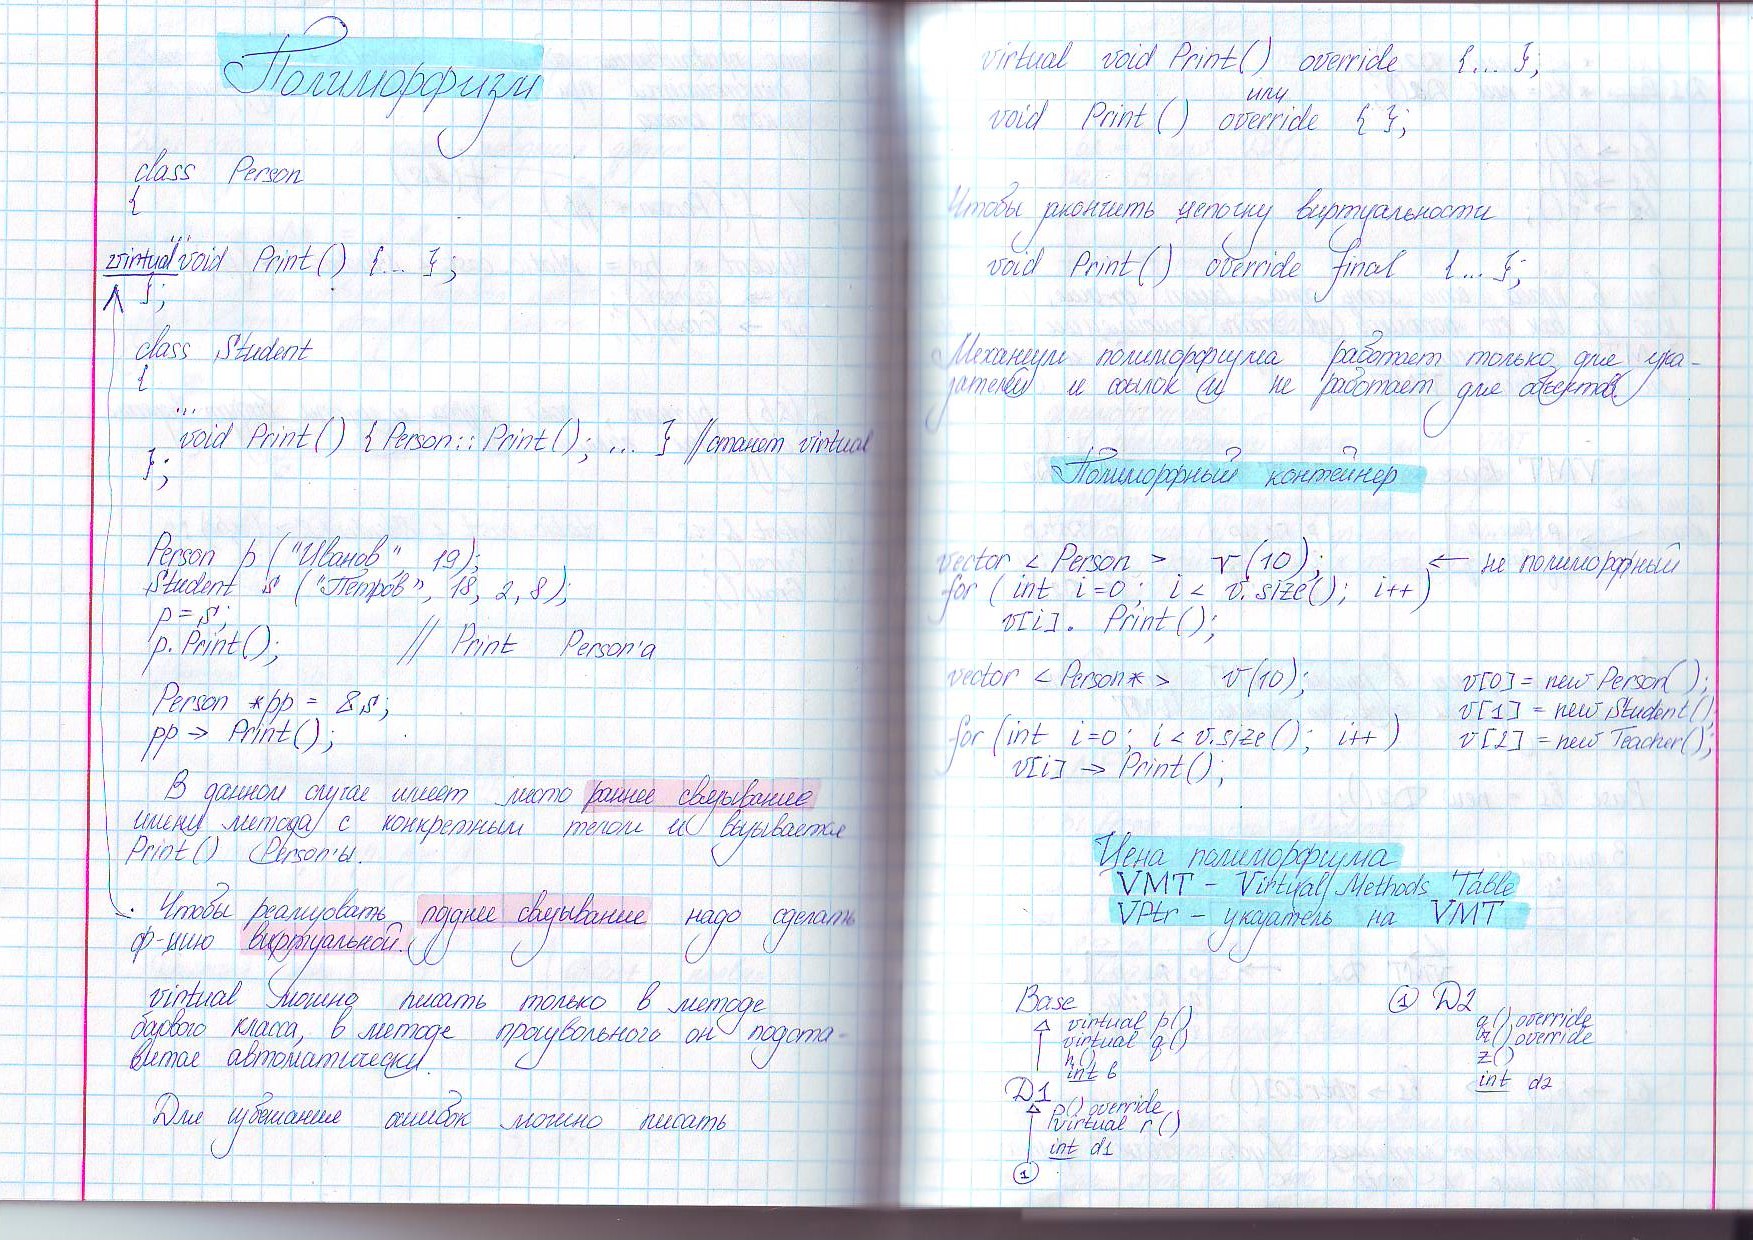 Полиморфизм
class Person
{
...
virtual void Print() {... };
};
class Student
{
...
void Print() {Person::Print(); ... } //станет virtual
};
Person p ("Иванов", 19);
Student s ("Петров", 18, 2, 8);
p = s;
p.Print(); // Print Person'а
Person *pp = &s;
pp -> Print();
В данном случае имеет место раннее связывание
имени метода с конкретным телом и вызывается
Print() Person'ы.
Чтобы реализовать позднее связывание надо сделать
ф-цию виртуальной.
virtual можно писать только в методе
базового класса, в методе произвольного он подста-
вится автоматически.
Для избежания ошибок можно писать
virtual void Print() override {... };
или
void Print() override { };
Чтобы закончить цепочку виртуальности
void Print() override final {... };
Механизм полиморфизма работает только для ука-
зателей и ссылок и не работает для объектов.
Полиморфный контейнер
vector < Person > v(10); ← не полиморфный
for (int i=0; i < v.size(); i++)
v[i]. Print();
vector < Person* > v(10); v[0] = new Person();
v[1] = new Student();
for (int i=0; i < v.size(); i++) v[2] = new Teacher();
v[i] -> Print();
Цена полиморфизма
VMT - Virtual Methods Table
VPtr - указатель на VMT
Base
virtual p()
virtual q()
h()
int b
D1
p() override
virtual r()
int d1
1
1 D2
q() override
r() override
z()
int d2